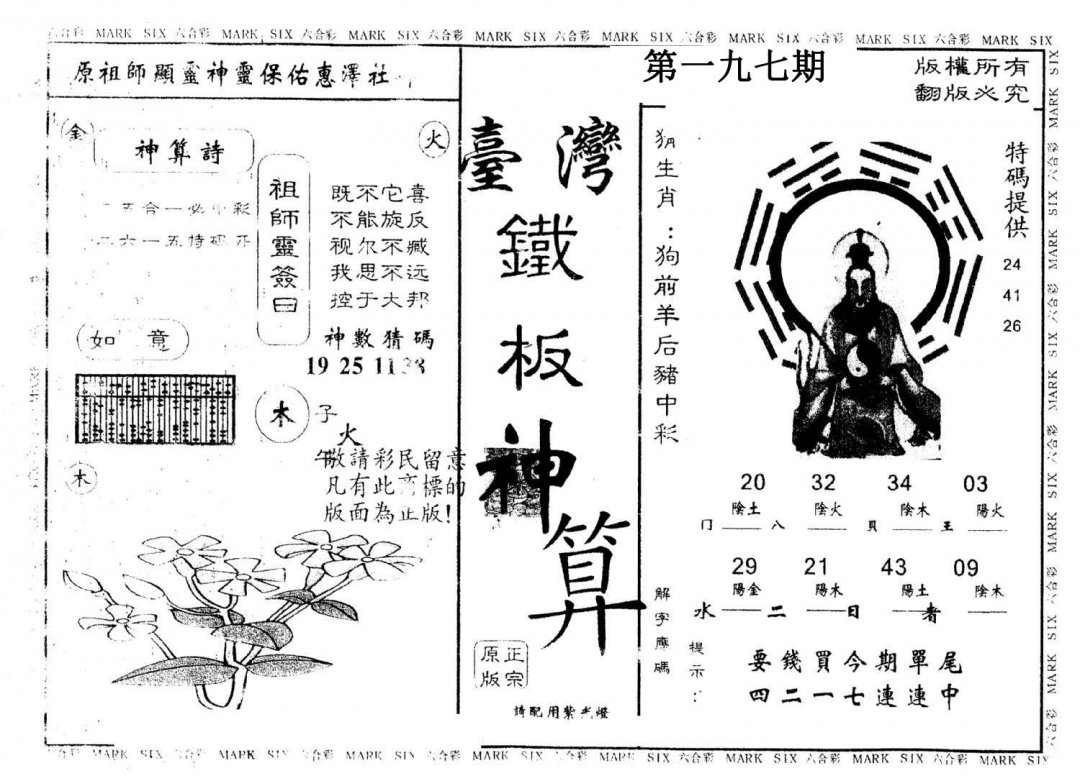 六合彩 MARK SIX 六合彩 MARK SIX 六合彩 MARK SIX 六合彩 MARK SIX 六合彩 MARK SIX 六合彩 MARK SIX 六合彩 MARK SIX 六合彩 MARK SIX
原祖師顯靈神靈保佑惠澤社
金
神算詩
火
五合一必中彩
二六一五特碼開
祖師靈簽曰
既不它喜
不能旋反
视尔不臧
我思不远
控于大邦
神數猜碼
19 25 11 38
如意
木
子
火
午
敬請彩民留意
凡有此商標的
版面為正版!
木
臺灣
鐵
板
神
算
正宗
原版
請配用紫光燈
第一九七期
版權所有
翻版必究
生肖:狗前羊后豬中彩
特碼提供
24
41
26
20 32 34 03
陰土 陰火 陰木 陽火
门 八 貝 王
29 21 43 09
陽金 陽木 陽土 陰木
水 二 日 者
解字應碼
提示:
要錢買今期單尾
四二一七連連中
MARK SIX 六合彩 MARK SIX 六合彩 MARK SIX 六合彩 MARK SIX 六合彩 MARK SIX 六合彩 MARK SIX 六合彩 MARK SIX
六合彩 MARK SIX 六合彩 MARK SIX 六合彩 MARK SIX 六合彩 MARK SIX 六合彩 MARK SIX 六合彩 MARK SIX 六合彩 MARK SIX 六合彩 MARK SIX